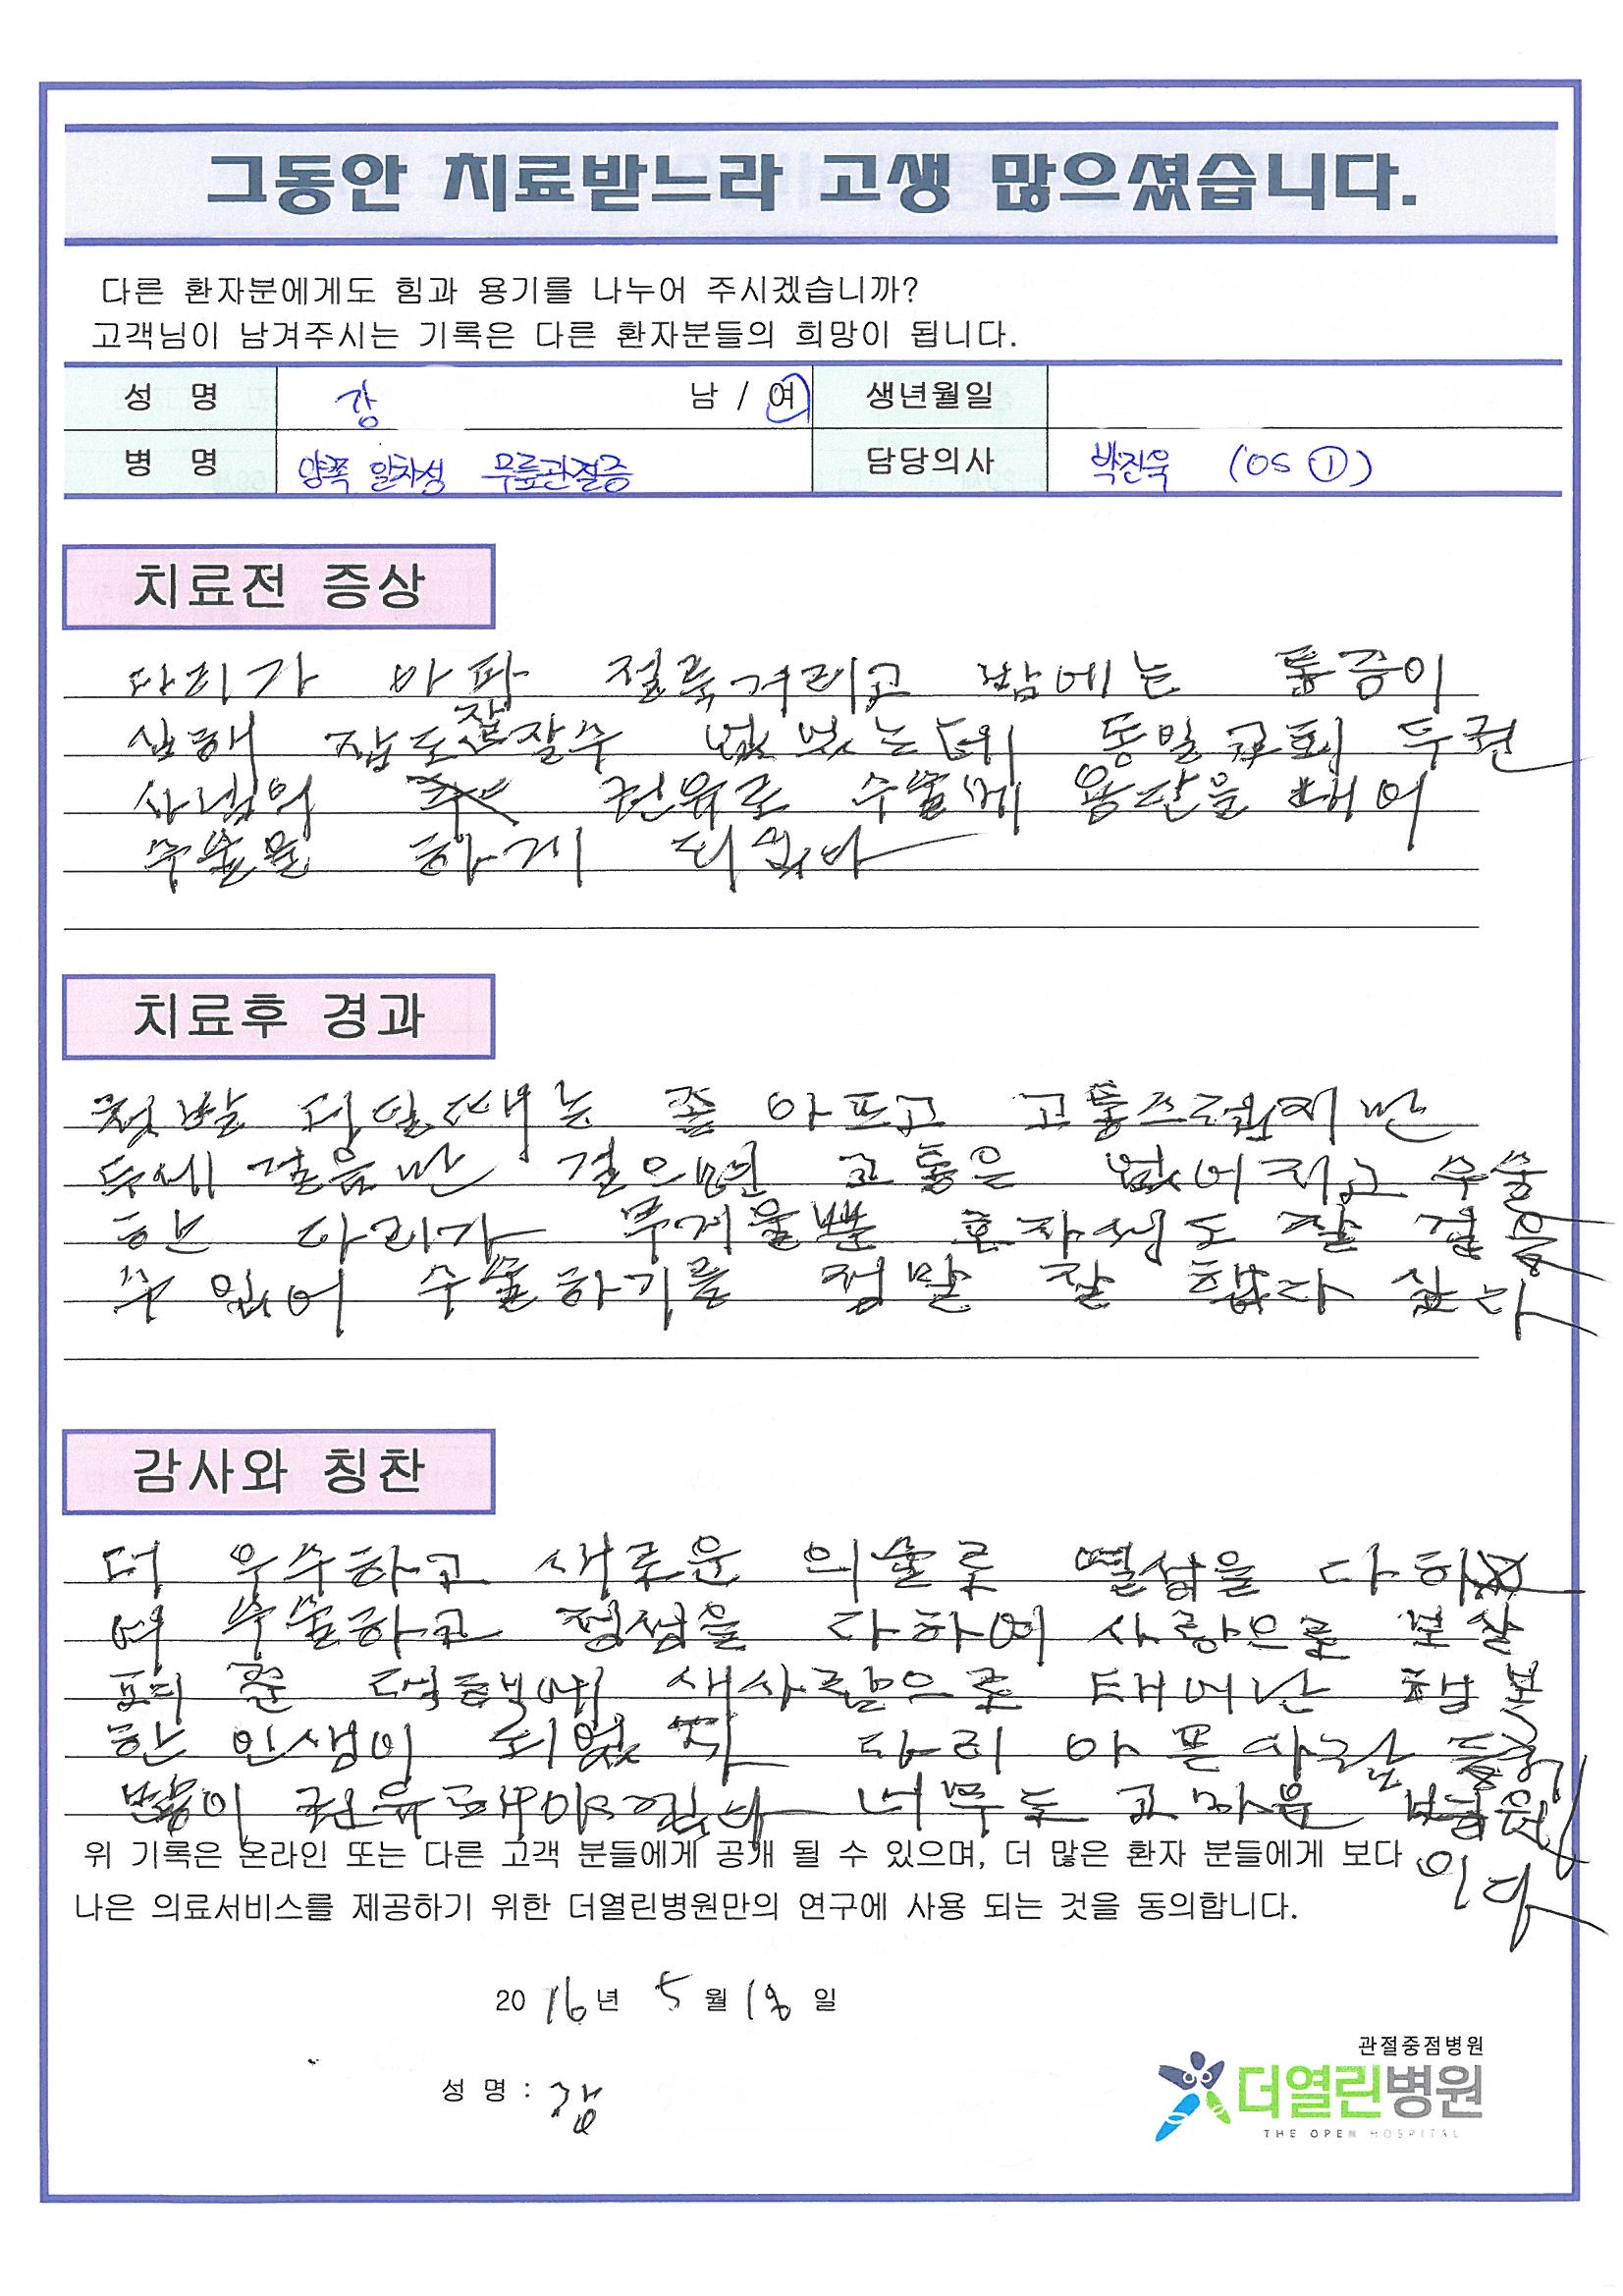 그동안 치료받느라 고생 많으셨습니다.
다른 환자분에게도 힘과 용기를 나누어 주시겠습니까?
고객님이 남겨주시는 기록은 다른 환자분들의 희망이 됩니다.
성 명 강 남 / 여 생년월일
병 명 양쪽 일차성 무릎관절증 담당의사 박진욱 (OS ①)
치료전 증상
다리가 아파 절룩거리고 밤에는 통증이
심해 잠도 잘 잘수 없었는데 동일교회
사님의 권유로 수술에 용단을 내어
수술을 하게 되었다
치료후 경과
첫발 디딜때는 좀 아프고 고통스러웠지만
두세걸음만 걸으면 고통은 없어지고 수술
한 다리가 무거울뿐 혼자서도 잘 걸을
수 있어 수술하기를 정말 잘 했다 싶다
감사와 칭찬
더 우수하고 새로운 의술로 열심을 다하
여 수술하고 정성을 다하여 사랑으로 보살
펴 준 덕택에 새사람으로 태어난 행복
한 인생이 되었 다리 아픈사람
많이 권유해야겠다 너무도 고마운 병원
이다
위 기록은 온라인 또는 다른 고객 분들에게 공개 될 수 있으며, 더 많은 환자 분들에게 보다
나은 의료서비스를 제공하기 위한 더열린병원만의 연구에 사용 되는 것을 동의합니다.
2016년 5월 18일
성 명 : 강
관절중점병원
더열린병원
THE OPEN HOSPITAL